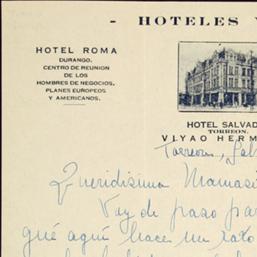 - HOTELES V
HOTEL ROMA
DURANGO.
CENTRO DE REUNION
DE LOS
HOMBRES DE NEGOCIOS,
PLANES EUROPEOS
Y AMERICANOS.
HOTEL SALVAD
TORREON.
VIYAO HERM
Torreon,
Queridisima Mamasi
Voy de paso par
qué aquí hace un rato